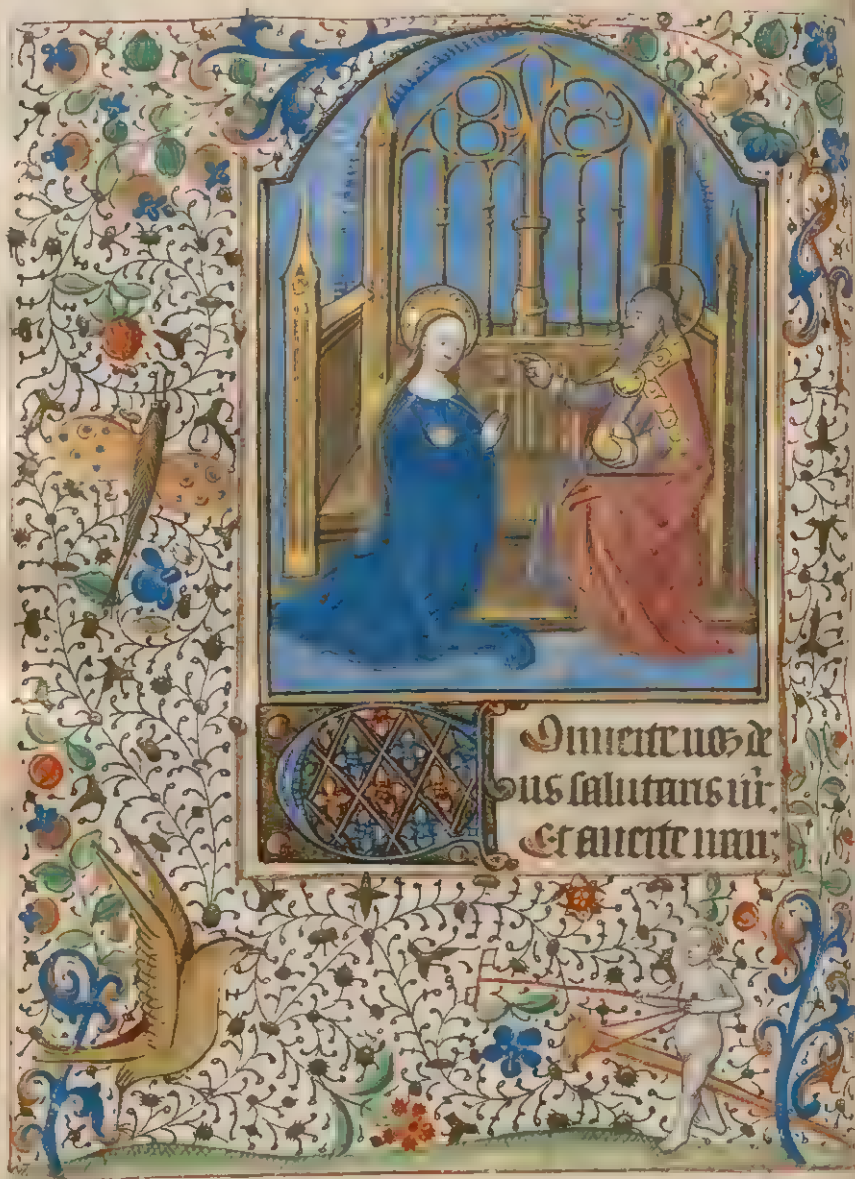 Onuerte nos de
us salutaris nr̄.
Et auerte iram